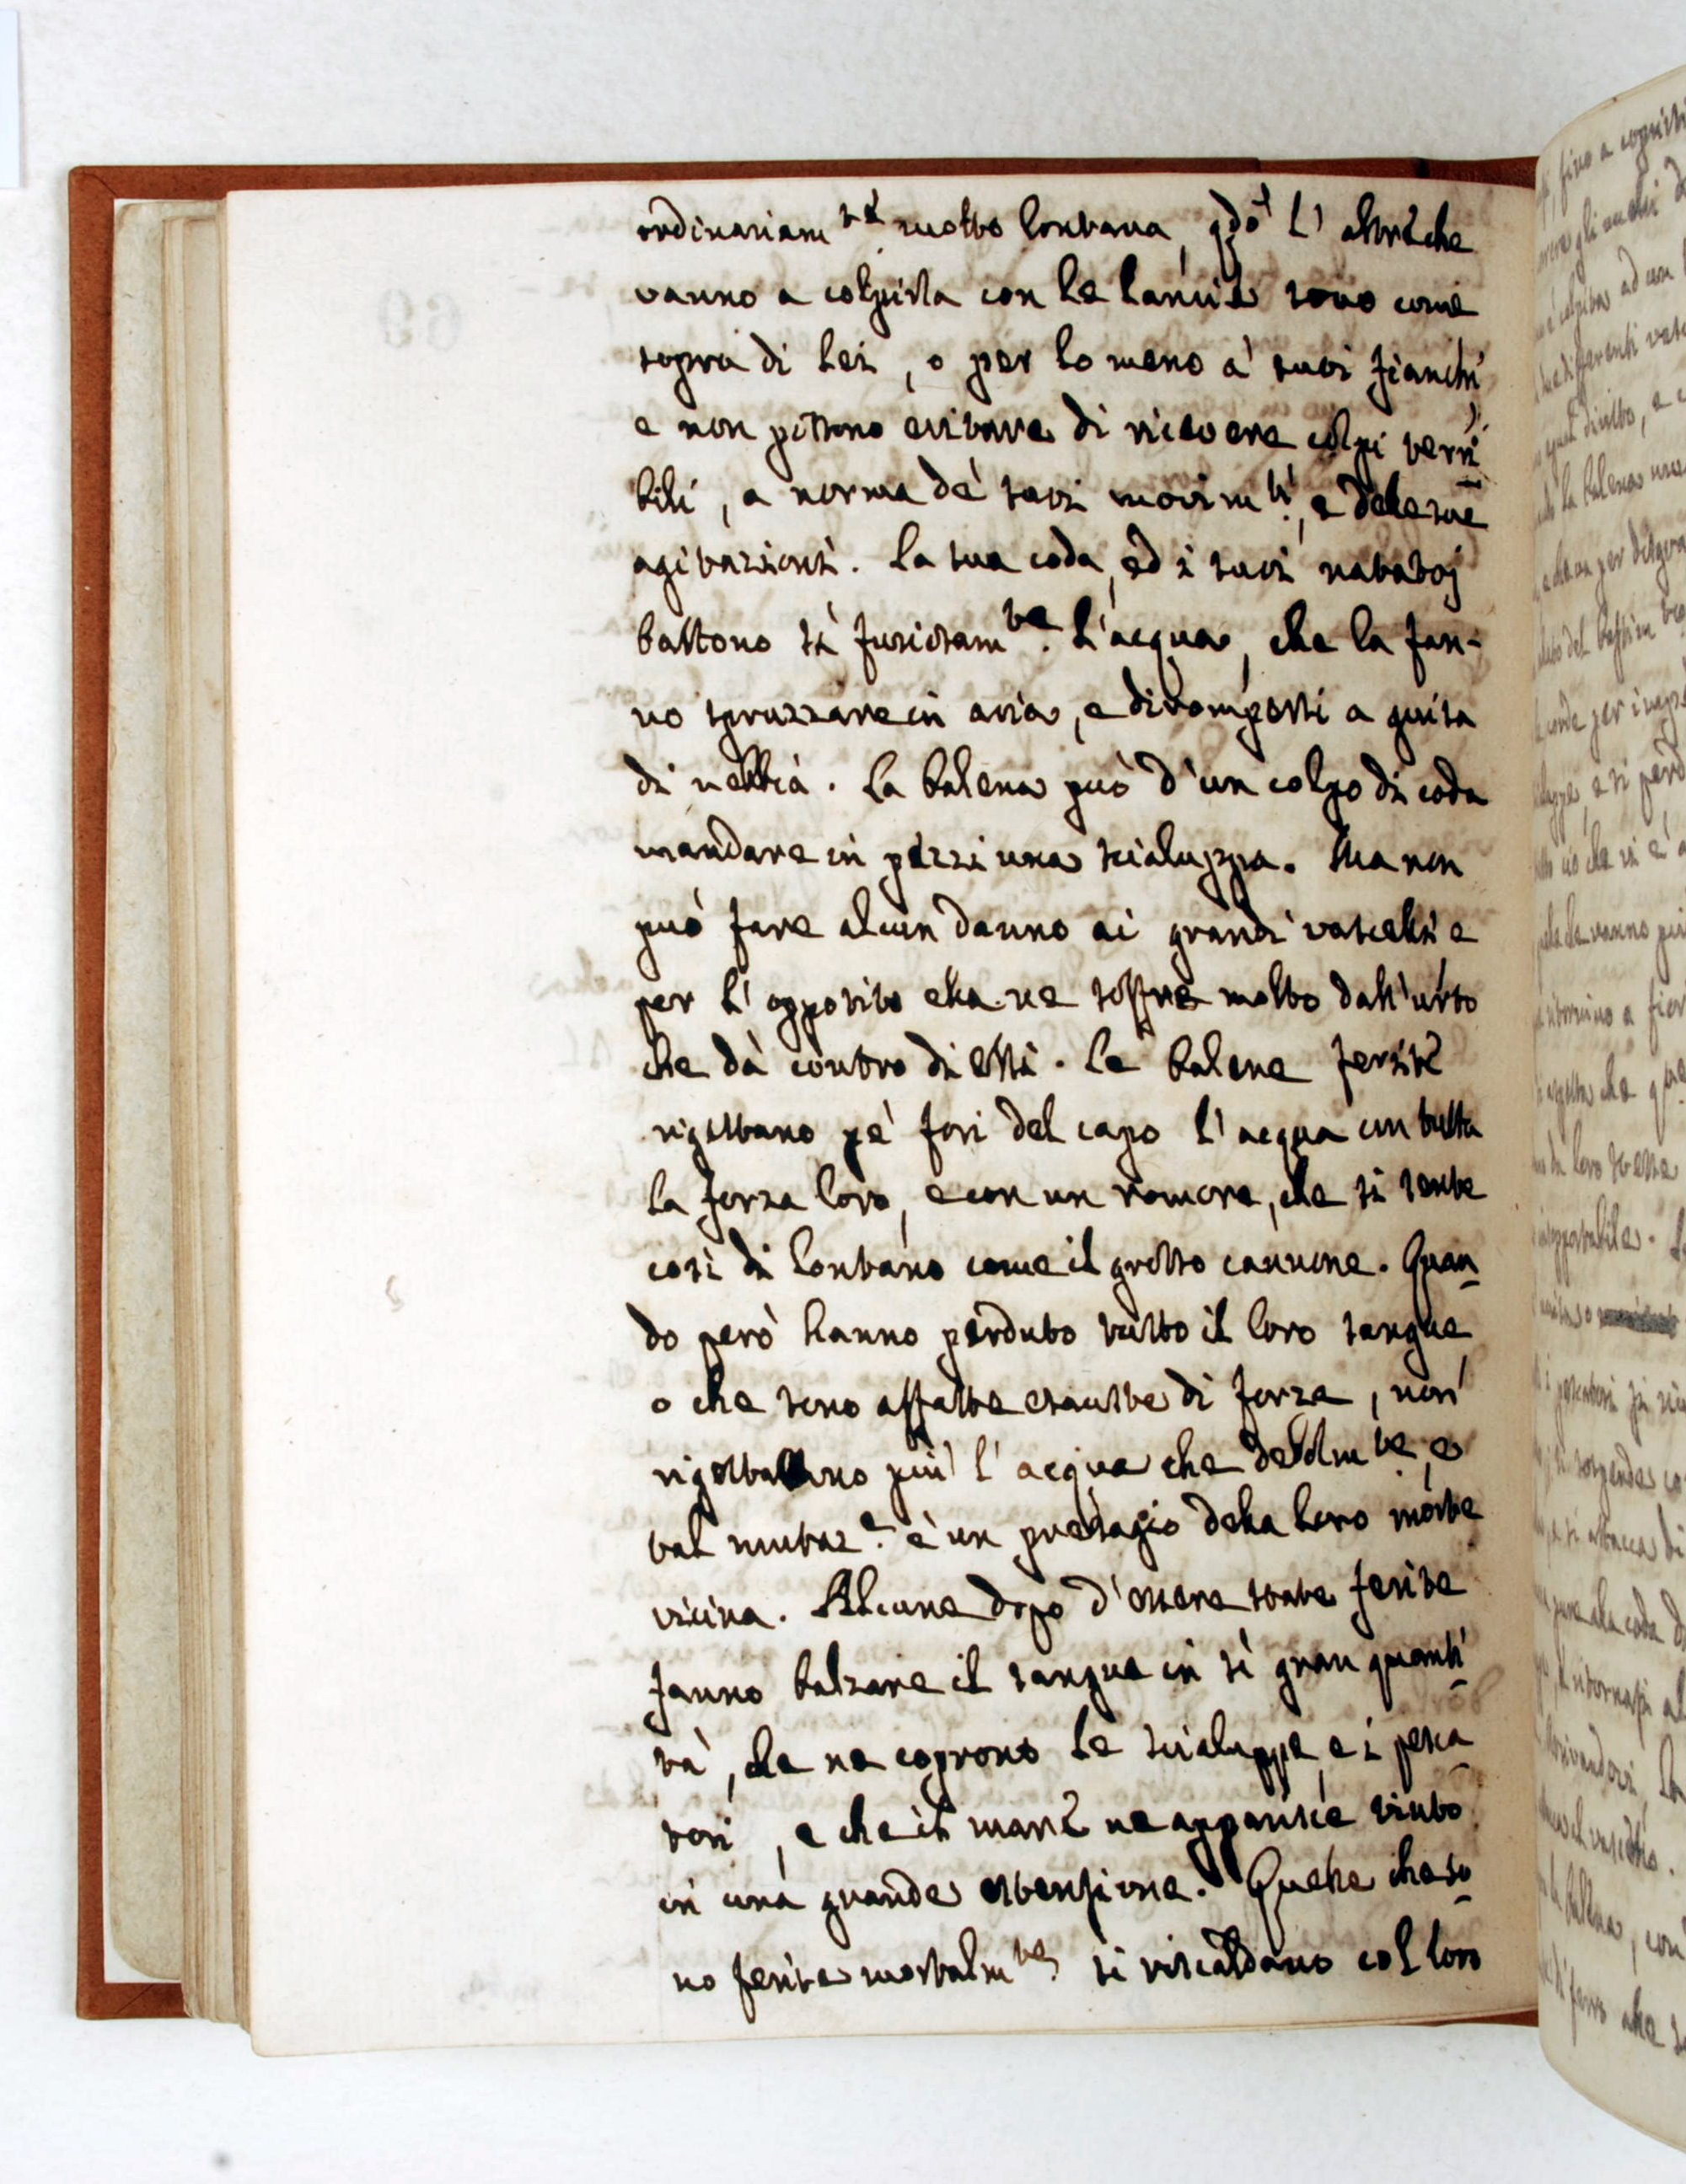 ordinariam.te molto lontana, qdo l'altre che
vanno a colpirla con le lancie sono come
sopra di lei, o per lo meno a' suoi fianchi,
e non possono evitare di ricevere colpi terri
bili, a norma de' suoi movim.ti, e delle sue
agitazioni. La sua coda, ed i suoi natatoj
battono sì furiosam.te l'acqua, che la fan-
no spruzzare in aria, e dirompersi a guisa
di nebbia. La balena può d'un colpo di coda
mandare in pezzi una scialuppa. Ma non
può fare alcun danno ai grandi vascelli e
per l'opposito ella ne soffre molto dall'urto
che dà contro di essi. Le balene ferite
rigettano pe' fori del capo l'acqua con tutta
la forza loro, e con un romore, che si sente
così di lontano come il grosso cannone. Quan
do però hanno perduto tutto il loro sangue
o che sono affatte esauste di forze, non
rigettano più l'acqua che debolm.te, e
tal mutaz.e è un presagio della loro morte
vicina. Alcune dopo d'essere state ferite
fanno balzare il sangue in sì gran quanti
tà, che ne coprono le scialuppe, e i pesca
tori, e che il mare ne apparisce tinto
in una grande estensione. Quelle che so
no ferite mortalm.te si riscaldano col loro